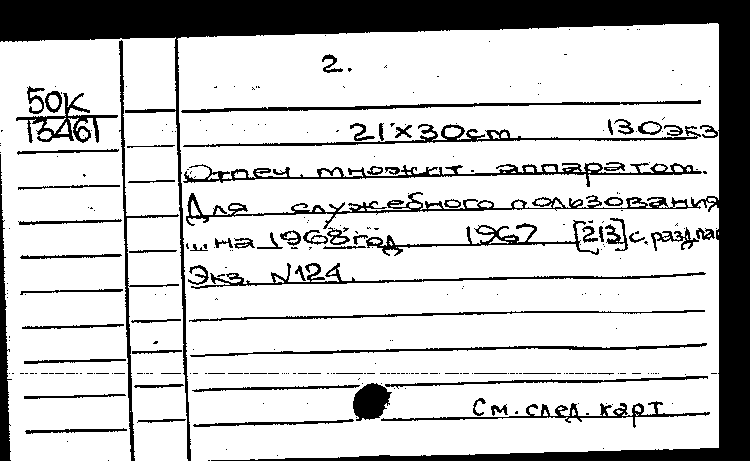 2.
50К
13461
21×30cm. 130экз
Отпеч. множит. аппаратом.
Для служебного пользования
... на 1968 год 1967 [213] с. раздпаг
Экз. N124.
См. след. карт